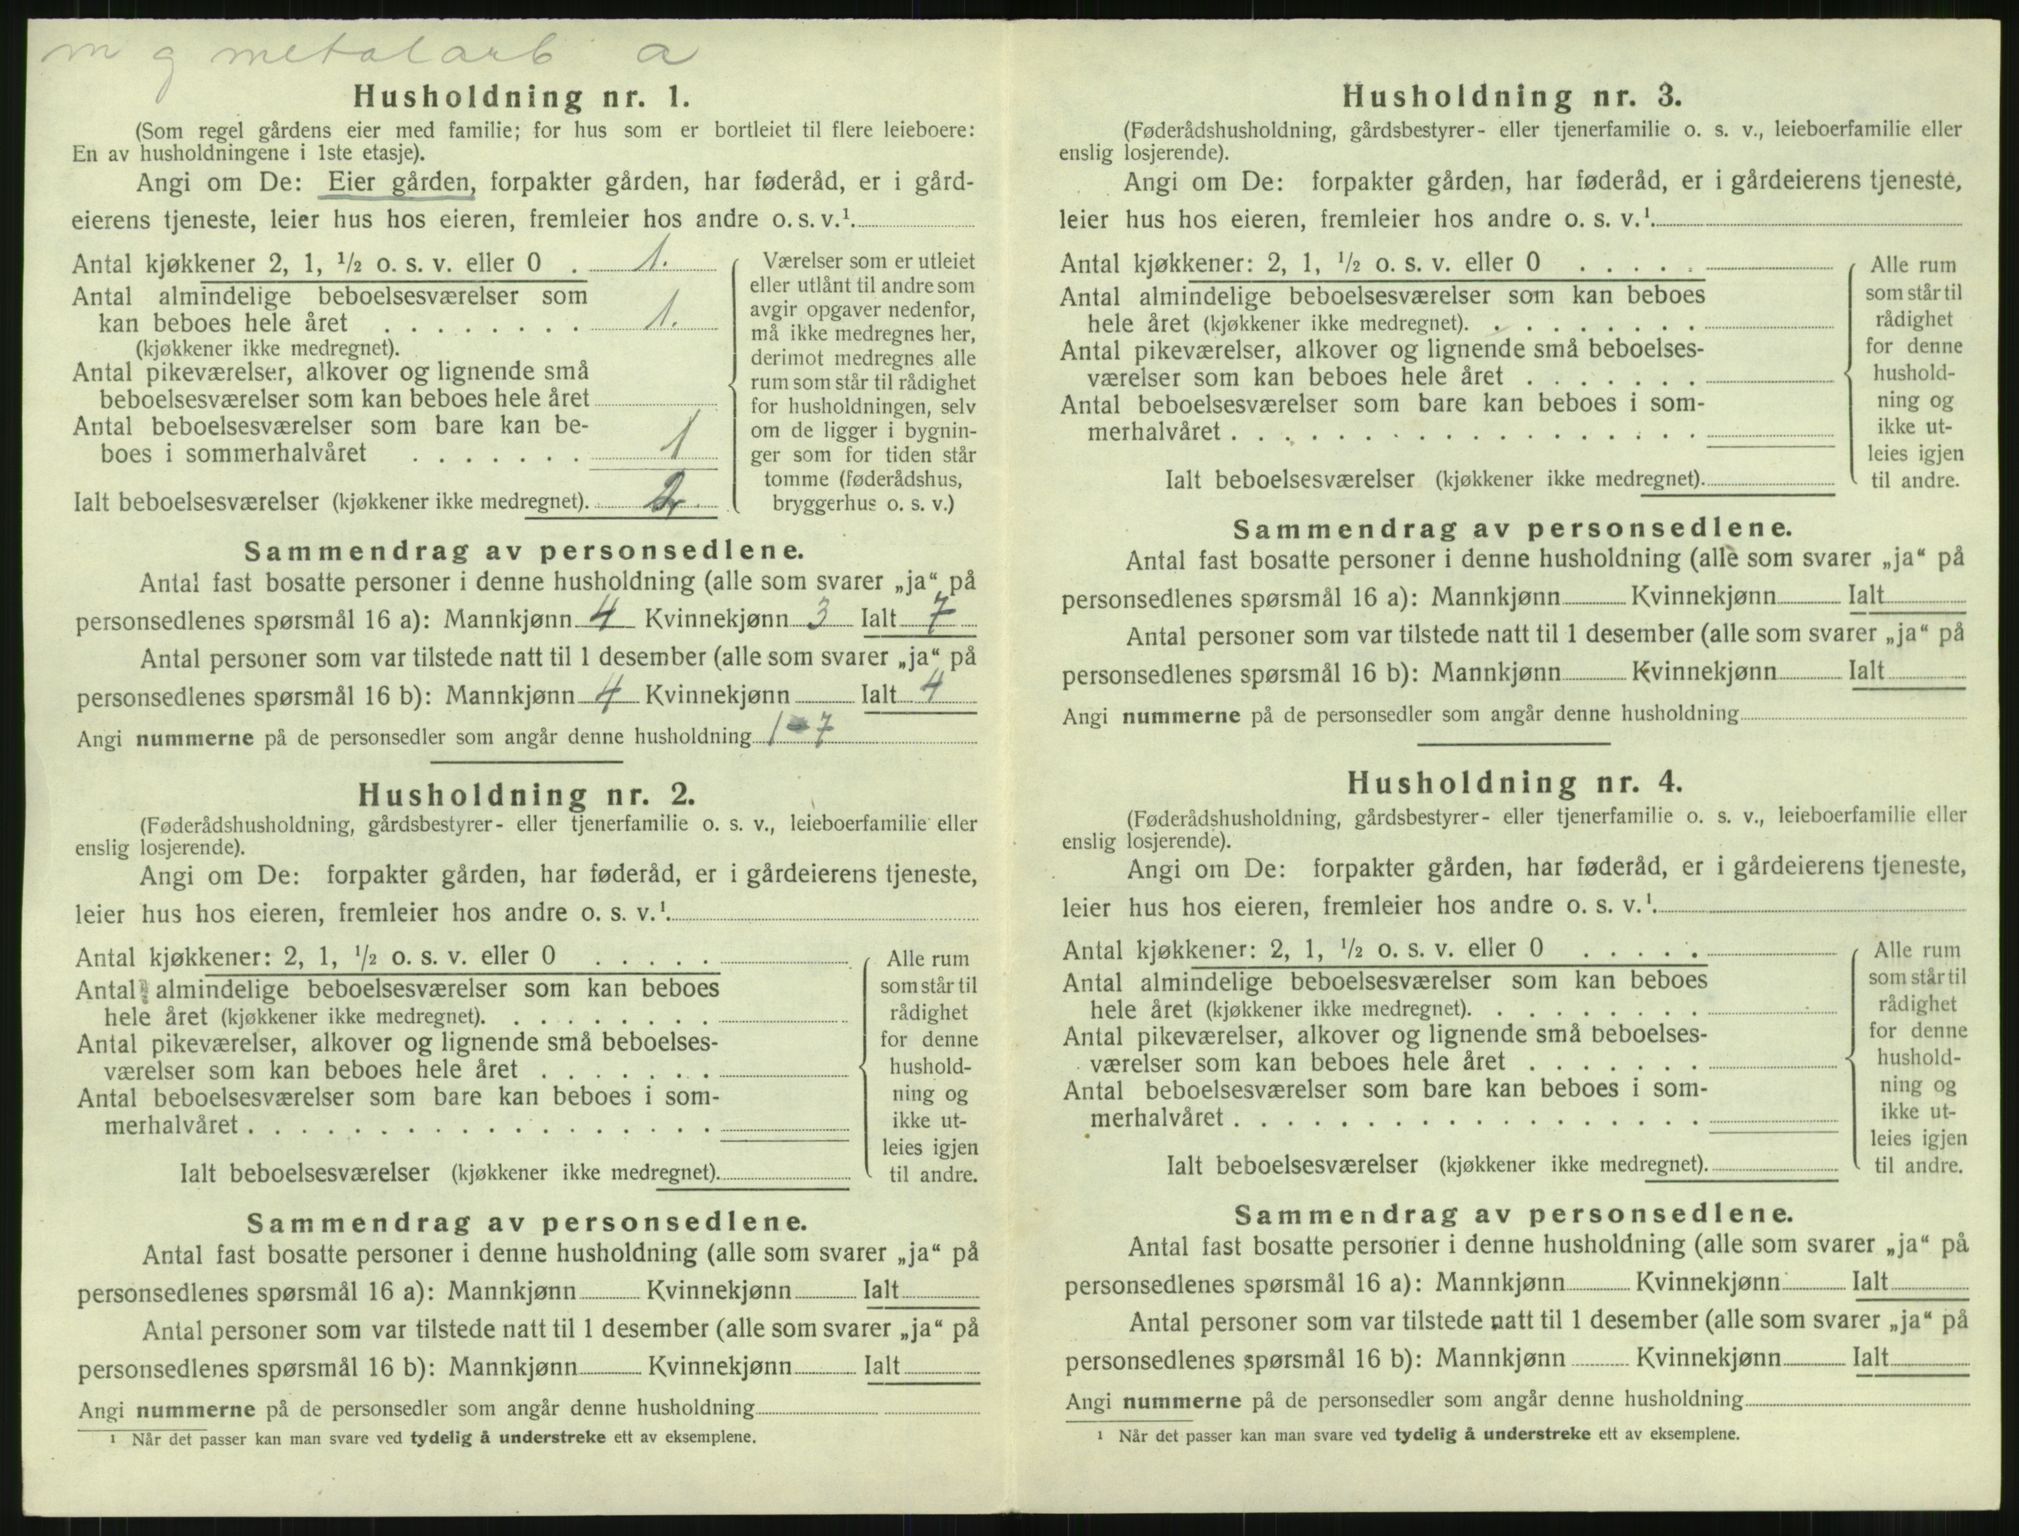 m g metalarb a
Husholdning nr. 1.
(Som regel gårdens eier med familie; for hus som er bortleiet til flere leieboere:
En av husholdningene i 1ste etasje).
Angi om De: Eier gården, forpakter gården, har føderåd, er i gård-
eierens tjeneste, leier hus hos eieren, fremleier hos andre o. s. v.¹
Antal kjøkkener 2, 1, ½ o. s. v. eller 0 . 1.
Antal almindelige beboelsesværelser som
kan beboes hele året . . . . . . . . 1.
(kjøkkener ikke medregnet).
Antal pikeværelser, alkover og lignende små
beboelsesværelser som kan beboes hele året
Antal beboelsesværelser som bare kan be-
boes i sommerhalvåret . . . . . . . 1
Ialt beboelsesværelser (kjøkkener ikke medregnet). 2.
Værelser som er utleiet
eller utlånt til andre som
avgir opgaver nedenfor,
må ikke medregnes her,
derimot medregnes alle
rum som står til rådighet
for husholdningen, selv
om de ligger i bygnin-
ger som for tiden står
tomme (føderådshus,
bryggerhus o. s. v.)
Sammendrag av personsedlene.
Antal fast bosatte personer i denne husholdning (alle som svarer „ja“ på
personsedlenes spørsmål 16 a): Mannkjønn 4 Kvinnekjønn 3 Ialt 7
Antal personer som var tilstede natt til 1 desember (alle som svarer „ja“ på
personsedlenes spørsmål 16 b): Mannkjønn 4 Kvinnekjønn Ialt 4
Angi nummerne på de personsedler som angår denne husholdning 1-7
Husholdning nr. 2.
(Føderådshusholdning, gårdsbestyrer- eller tjenerfamilie o. s. v., leieboerfamilie eller
enslig losjerende).
Angi om De: forpakter gården, har føderåd, er i gårdeierens tjeneste,
leier hus hos eieren, fremleier hos andre o. s. v.¹
Antal kjøkkener: 2, 1, ½ o. s. v. eller 0 . . . . .
Antal almindelige beboelsesværelser som kan beboes
hele året (kjøkkener ikke medregnet). . . . . . . . .
Antal pikeværelser, alkover og lignende små beboelses-
værelser som kan beboes hele året . . . . . . .
Antal beboelsesværelser som bare kan beboes i som-
merhalvåret . . . . . . . . . . . . . . . . . .
Ialt beboelsesværelser (kjøkkener ikke medregnet).
Alle rum
som står til
rådighet
for denne
hushold-
ning og
ikke ut-
leies igjen
til andre.
Sammendrag av personsedlene.
Antal fast bosatte personer i denne husholdning (alle som svarer „ja“ på
personsedlenes spørsmål 16 a): Mannkjønn Kvinnekjønn Ialt
Antal personer som var tilstede natt til 1 desember (alle som svarer „ja“ på
personsedlenes spørsmål 16 b): Mannkjønn Kvinnekjønn Ialt
Angi nummerne på de personsedler som angår denne husholdning
¹ Når det passer kan man svare ved tydelig å understreke ett av eksemplene.
Husholdning nr. 3.
(Føderådshusholdning, gårdsbestyrer- eller tjenerfamilie o. s. v., leieboerfamilie eller
enslig losjerende).
Angi om De: forpakter gården, har føderåd, er i gårdeierens tjeneste,
leier hus hos eieren, fremleier hos andre o. s. v.¹
Antal kjøkkener: 2, 1, ½ o. s. v. eller 0 . . . . .
Antal almindelige beboelsesværelser som kan beboes
hele året (kjøkkener ikke medregnet). . . . . . . . .
Antal pikeværelser, alkover og lignende små beboelses-
værelser som kan beboes hele året . . . . . . .
Antal beboelsesværelser som bare kan beboes i som-
merhalvåret . . . . . . . . . . . . . . . . . .
Ialt beboelsesværelser (kjøkkener ikke medregnet).
Alle rum
som står til
rådighet
for denne
hushold-
ning og
ikke ut-
leies igjen
til andre.
Sammendrag av personsedlene.
Antal fast bosatte personer i denne husholdning (alle som svarer „ja“ på
personsedlenes spørsmål 16 a): Mannkjønn Kvinnekjønn Ialt
Antal personer som var tilstede natt til 1 desember (alle som svarer „ja“ på
personsedlenes spørsmål 16 b): Mannkjønn Kvinnekjønn Ialt
Angi nummerne på de personsedler som angår denne husholdning
Husholdning nr. 4.
(Føderådshusholdning, gårdsbestyrer- eller tjenerfamilie o. s. v., leieboerfamilie eller
enslig losjerende).
Angi om De: forpakter gården, har føderåd, er i gårdeierens tjeneste,
leier hus hos eieren, fremleier hos andre o. s. v.¹
Antal kjøkkener: 2, 1, ½ o. s. v. eller 0 . . . . .
Antal almindelige beboelsesværelser som kan beboes
hele året (kjøkkener ikke medregnet). . . . . . . . .
Antal pikeværelser, alkover og lignende små beboelses-
værelser som kan beboes hele året . . . . . . .
Antal beboelsesværelser som bare kan beboes i som-
merhalvåret . . . . . . . . . . . . . . . . . .
Ialt beboelsesværelser (kjøkkener ikke medregnet).
Alle rum
som står til
rådighet
for denne
hushold-
ning og
ikke ut-
leies igjen
til andre.
Sammendrag av personsedlene.
Antal fast bosatte personer i denne husholdning (alle som svarer „ja“ på
personsedlenes spørsmål 16 a): Mannkjønn Kvinnekjønn Ialt
Antal personer som var tilstede natt til 1 desember (alle som svarer „ja“ på
personsedlenes spørsmål 16 b): Mannkjønn Kvinnekjønn Ialt
Angi nummerne på de personsedler som angår denne husholdning
¹ Når det passer kan man svare ved tydelig å understreke ett av eksemplene.